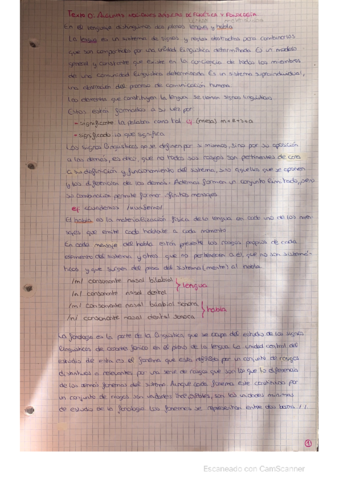 TEMA 0: ALGUNAS NOCIONES BÁSICAS DE FONÉTICA Y FONOLOGÍA
En el lenguaje distinguimos dos planos: lengua y habla
La lengua es un sistema de signos y reglas abstractas para combinarlos
que son compartidas por una unidad lingüística determinada. Es un modelo
general y constante que existe en la conciencia de todos los miembros
de una comunidad lingüística determinada. Es un sistema supraindividual,
una abstracción del proceso de comunicación humana.
Los elementos que constituyen la lengua se llaman signos lingüísticos
Estos están formados a su vez por:
significante: la palabra como tal ej (mesa) m+e+s+a
significado: lo que significa
Los signos lingüísticos no se definen por sí mismos, sino por su oposición
a los demás, es decir que no todos sus rasgos son pertinentes de cara
a su definición y funcionamiento del sistema, sólo aquellos que se oponen
y los diferencian de los demás. Además forman un conjunto limitado, pero
su combinación permite formar
mensajes
El habla es la materialización física de la lengua en cada uno de los
que emite cada hablante a cada momento
En cada mensaje del habla están presentes los rasgos propios de cada
elemento del sistema y otros que no pertenecen a él, que no son sistemáticos
y que surgen del paso del sistema (mente) al
/m/ consonante nasal bilabial
/n/ consonante nasal
lengua
/m/ consonante nasal bilabial sonora
/n/ consonante nasal
sonora
habla
La fonología es la parte de la lingüística que se ocupa del estudio de los signos
lingüísticos de carácter fónico en el plano de la lengua. La unidad central del
estudio de esta es el fonema que está definido por un conjunto de rasgos
distintivos o relevantes por una serie de rasgos que son los que lo diferencia
de los demás fonemas del sistema. Aunque cada fonema esté constituido por
un conjunto de rasgos son unidades indivisibles, son las unidades mínimas
de estudio de la fonología. Los fonemas se representan entre dos barras / /
1
Escaneado con CamScanner